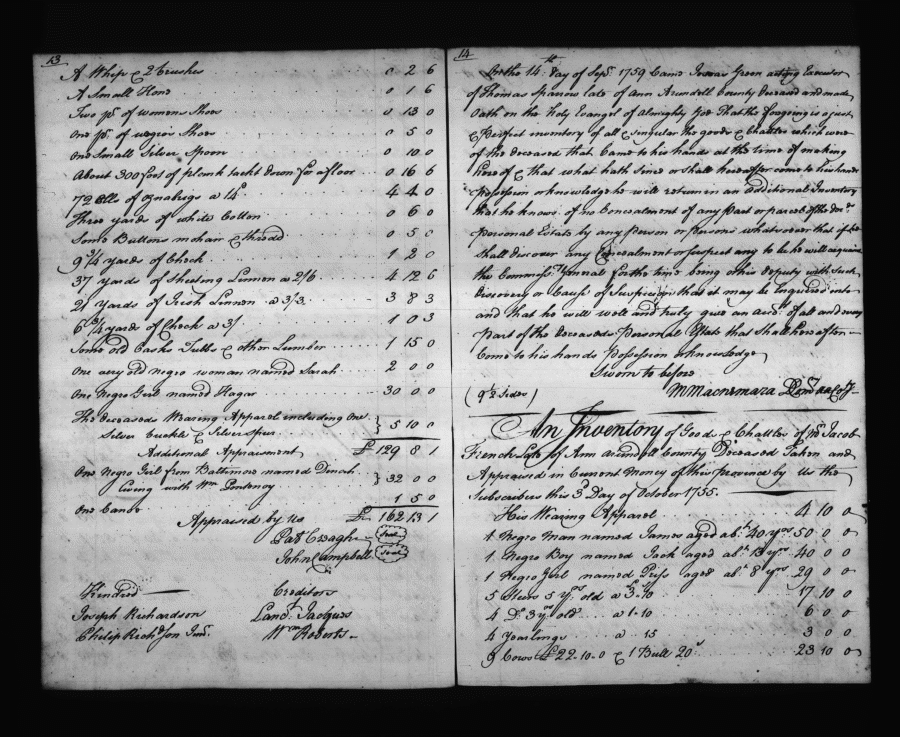 13
A Whip & 2 brushes 0 2 6
A Small Hone 0 1 6
Two pr. of womens Shoes 0 13 0
One pr. of negro Shoes 0 5 0
One Small Silver Spoon 0 10 0
About 300 foot of plank tackt down for a floor 0 16 6
72 Ells of oznabrigs a 14d 4 4 0
Three yards of white Cotton 0 6 0
Some Buttons mohair & thread 0 5 0
9 3/4 yards of Check 1 2 0
37 yards of Sheeting Linnen a 2/6 4 12 6
21 yards of Irish Linnen a 3/3 3 8 3
6 3/4 yards of Check a 3/ 1 0 3
Some old Casks Tubbs & other Lumber 1 15 0
One very old negro woman named Sarah 2 0 0
One Negro Girl named Hagar 30 00 0
The deceaseds Waring Apparel including One
Silver buckle & Silver Spur } 5 10 0
Additional Appraisment £ 129 8 1
One Negro Girl from Baltimore named Dinah
living with Wm } 32 00 0
One Canoe 1 5 0
Appraised by Us £ 162 13 1
Pat Creagh Seal
John Campbell Seal
Kindred Creditors
Joseph Richardson Lanct. Jacques
Philip Richdson Junr. Wm Roberts
14
On the 14th day of Sepr. 1759 Came Jonas Green acting Executor
of Thomas Sparrow late of Ann Arundell County deceased and made
Oath on the Holy Evangel of almighty God That the foregoing is a just
& Perfect inventory of all & singular the goods & Chattles which were
of the deceased that Came to his hands at the time of making
hereof & that what hath Since or shall hereafter come to his hands
Possession or knowledge he will return in an additional Inventory
that he knows of no Concealment of any part or parcel of the deceds
Personal Estate by any person or persons whatsoever that if he
shall discover any Concealment or suspect any to be he will acquaint
the Commissry General for the time being or his deputy with Such
discovery or Cause of Suspicion that it may be Enquired into
and that he will well and truly give an acct. of all and every
part of the deceaseds Personal Estate that shall hereafter
Come to his hands Possession or knowledge
Sworn to before
(9 1/2 Sides) M Macnemara
An Inventory of Goods & Chattles of Mr. Jacob
French late of Ann Arundell County Deceased Taken and
Appraised in Current Money of this province by Us the
Subscribers this 3d Day of October 1755.
His Waring Apparel 4 10 0
1 Negro Man named James aged abt. 40 yrs. 50 0 0
1 Negro Boy named Jack aged abt. 13 yrs. 40 0 0
1 Negro Girl named Priss aged abt. 8 yrs 29 0 0
5 Steers 5 yrs old a 3.10 17 10 0
4 Do. 3 yrs old a 1.10 6 0 0
4 Yearlings a 15 3 0 0
9 Cows £22.10.0 & 1 Bull 20s 23 10 0